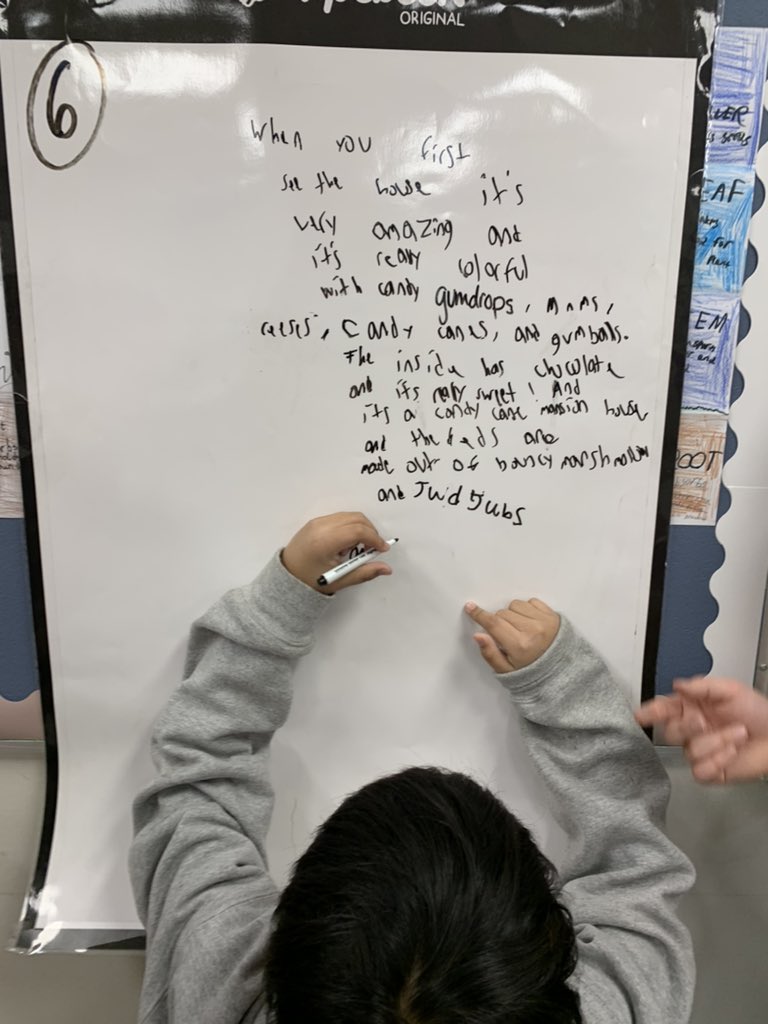 ORIGINAL
6
When you first
see the house it's
very amazing and
it's really colorful
with candy gumdrops, mnms,
reeses, candy canes, and gumballs.
The inside has chocolate
and it's really sweet! And
it's a candy cane mansion house
and the beds are
made out of bouncy marshmallow
and Jujubs
EAF
EM
OOT